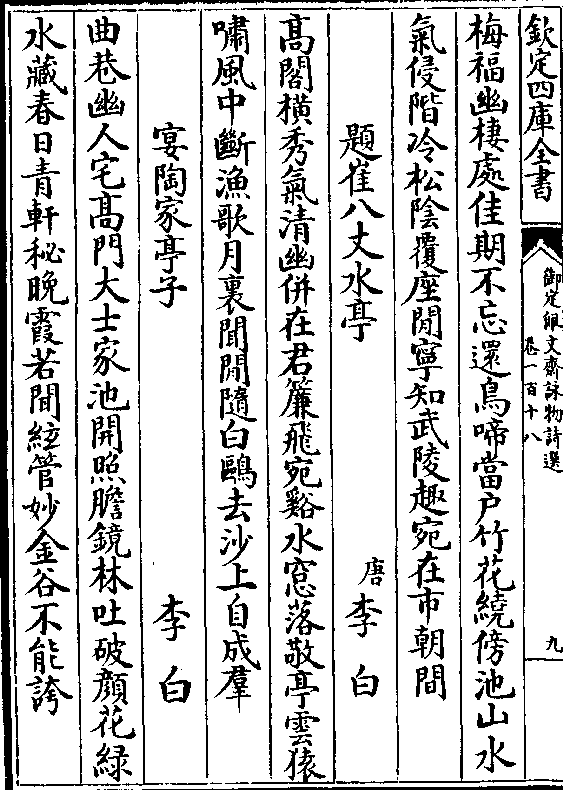 欽定四庫全書
御定佩文齋詠物詩選
卷一百十八
九
梅福幽棲處佳期不忘還鳥啼當户竹花繞傍池山水
氣侵階冷松陰覆座閒寧知武陵趣宛在市朝間
題崔八丈水亭
唐李白
高閣橫秀氣清幽併在君簷飛宛谿水窓落敬亭雲猿
嘯風中斷漁歌月裏聞閒隨白鷗去沙上自成羣
宴陶家亭子
李白
曲巷幽人宅高門大士家池開照膽鏡林吐破顏花緑
水藏春日青軒秘晚霞若聞絃管妙金谷不能誇